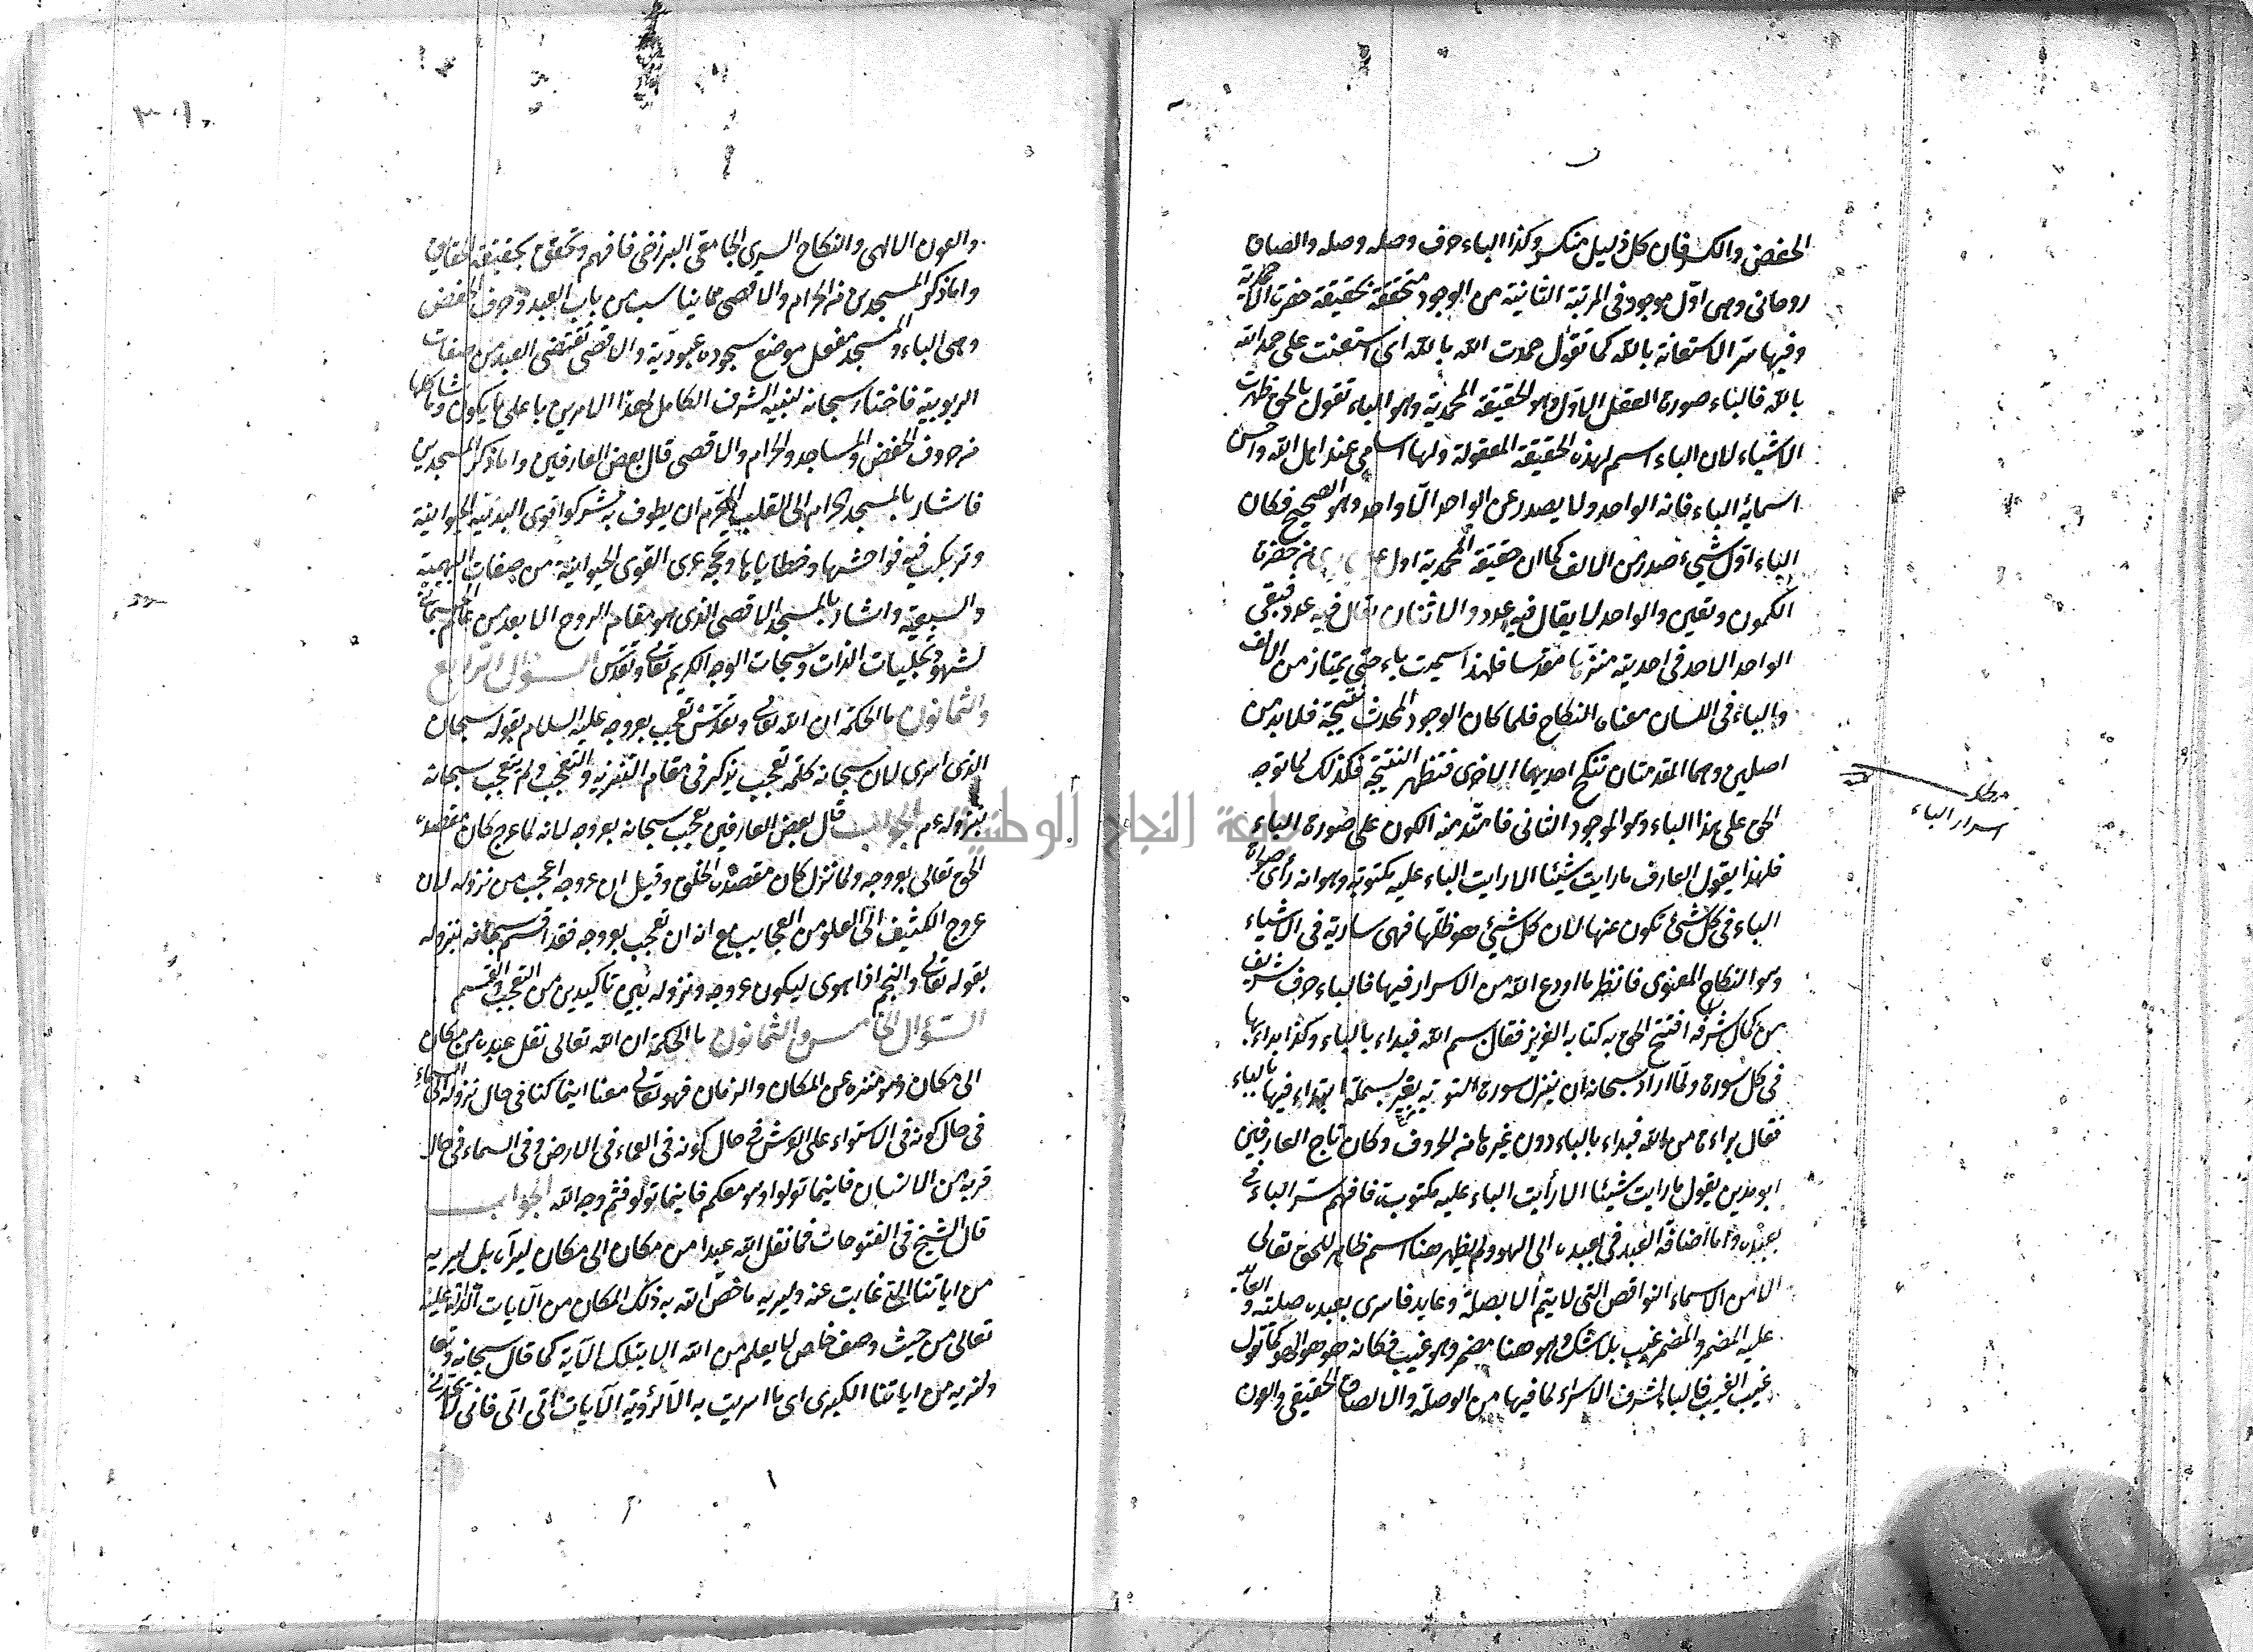 الخفض والكسر فان كل ذليل منكسر وكذا الباء حرف وصله وصله والصاق
روحانى وهى اوّل موجود فى المرتبة الثانية من الوجود متحققة بحقيقة حضرت الاحدية
وفيها سر الاستعانة بالله كما تقول حمدت الله بالله اى استعنت على حمد الله
بالله فالباء صورة العقل الاول وهو الحقيقة المحمدية وهو الباء تقول بالحق ظهرت
الاشياء لان الباء اسم لهذه الحقيقة المعقولة ولها اسامى عند اهل الله واحسن
اسمائه الباء فانه الواحد ولا يصدر عن الواحد الّا واحد وهو الصحيح فكان
الباء اوّل شئ صدر من الالف كما ان حقيقة المحمدية اول من حضرة
الكمون وتعين والواحد لا يقال فيه عدد والاثنان يقال فيه عدد فبقى
الواحد الاحد فى احديته منزها مقدسا فلهذا سميت باء حتى يمتاز من الالف
والباء فى اللسان معناه النكاح فلما كان الوجود المحدث نتيجة فلا بد من
اصلين وهما المقدمتان تنكح احديهما الاخرى فتظهر النتيجة فكذلك لما توجه
الحق على هذا الباء وهو الموجود الثانى فامتد منه الكون على صورة الباء
فلهذا يقول العارف ما رايت شيئا الا رايت الباء عليه مكتوبة وهو انه رأى صورة
الباء فى كل شئ تكون عنها لان كل شئ هو ظلّها فهى سارية فى الاشياء
وهو النكاح المعنوى فانظر ما اودع الله من الاسرار فيها فالباء حرف شريف
من كمال شرفه افتتح الحق به كتابه العزيز فقال بسم الله فبداء بالباء وكذا بداء بها
فى كل سورة ولمّا اراد سبحانه ان ينزل سورة التوبة بغير بسملة ابتداء فيها بالباء
فقال براءة من الله فبداء بالباء دون غيرها من الحروف وكان تاج العارفين
ابو مدين يقول ما رايت شيئا الا رأيت الباء عليه مكتوبة، فافهم سر الباء فى
بعبده واما اضافة العبد فى بعبده الى الهو ولم يظهر هنا اسم ظاهر للحق تعالى
الا من الاسماء النواقص التى لا يتم الا بصلة وعايد فاسرى بعبده صلته والعايد
عليه المضمر والمضمر غيب بلا شك وهو هنا مضمر وهو غيب فكانه هو هو الهو كما تقول
غيب الغيب فالباء لشرف الاسراء لما فيها من الوصلة والالصاق الحقيقى والعون
مطلب
اسرار الباء
والعون الالهى والنكاح السرى الجامعى البرزخى فافهم وتحقق بحقيقة الحقايق
واما ذكر المسجدين من الحرام والاقصى مما يناسب من باب العبد وحرف الخفض
وهى الباء والمسجد مفعل موضع سجوده عبودية والاقصى تقتضى العبد من صفات
الربوبية فاختار سبحانه لنبيه الشرف الكامل لهذا الامرين باعلى ما يكون وما شاكلها
من حروف الخفض والمساجد والحرام والاقصى قال بعض العارفين واما ذكر المسجدين
فاشار بالمسجد الحرام الى القلب المحرم ان يطوف به مشركوا قوى البدنية الحيوانية
وترتكب فيه فواحشها وخطاياها وتحجه غوى القوى الحيوانية من صفات البهيمية
والسبعية واشار بالمسجد الاقصى الذى هو مقام الروح الابعد من عالم الجسمانى
لشهود تجليات الذات وسبحات الوجه الكريم تعالى وتقدس السؤال الرابع
والثمانون ما الحكمة ان الله تعالى وتقدس تعجب بعروجه عليه السلام بقوله سبحان
الذى اسرى لان سبحانه كلمة تعجب يذكر فى مقام التنزيه والتعجب ولم يتعجب سبحانه
بنزوله عم الجواب قال بعض العارفين عجب سبحانه بعروجه لانه لما عرج كان مقصده
الحق تعالى بعروجه ولما نزل كان مقصده الخلق وقيل ان عروجه اعجب من نزوله لان
عروج الكثيف الى العلو من العجايب مع انه ان تعجب بعروجه فقد اقسم سبحانه بنزوله
بقوله تعالى والنجم اذا هوى ليكون عروجه ونزوله بين تاكيدين من التعجب والقسم
السؤال الخامس والثمانون ما الحكمة ان الله تعالى نقل عبده من مكان
الى مكان وهو منزه عن المكان والزمان فهو تعالى معنا اينما كنا فى حال نزوله الى السماء
فى حال كونه فى الاستواء على العرش فى حال كونه فى العماء فى الارض وفى السماء فى حال
قربه من الانسان فاينما تولوا وهو معكم فاينما تولوا فثم وجه الله الجواب
قال الشيخ فى الفتوحات فما نقل الله عبدا من مكان الى مكان ليراه بل ليريه
من اياتنا التى غابت عنه وليريه ما خصّ الله به ذلك المكان من الآيات الدالة عليه
تعالى من حيث وصف خاص لا يعلم من الله الا بتلك الآية كما قال سبحانه وتعا
ولنريه من اياتنا الكبرى اى ما اسريت به الّا لرؤية الآيات لا الى فانى لا